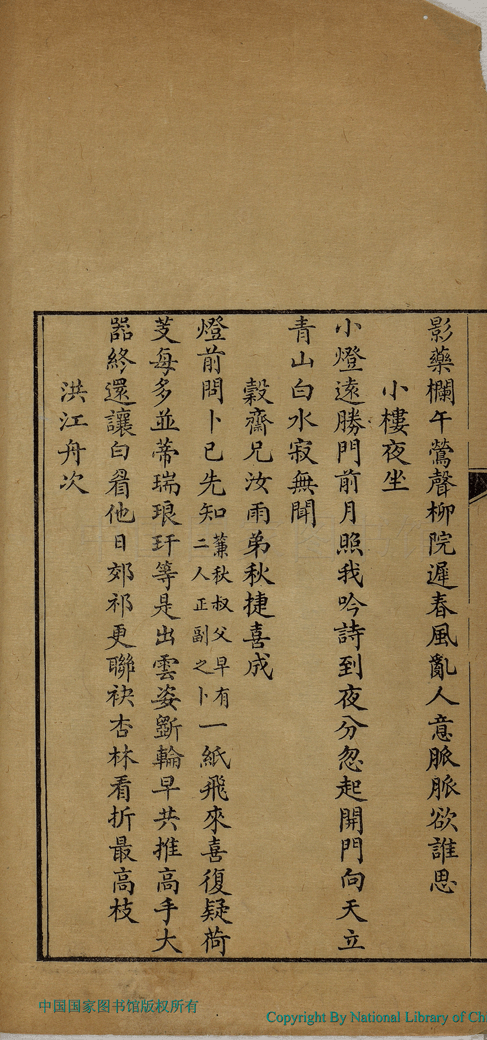 影藥欄午鶯聲柳院遲春風亂人意脈脈欲誰思
小樓夜坐
小燈遠勝門前月照我吟詩到夜分忽起開門向天立
青山白水寂無聞
穀齋兄汝雨弟秋捷喜成
燈前問卜已先知蕭秋叔父早有二人正副之卜一紙飛來喜復疑荷
芰每多並蒂瑞琅玕等是出雲姿斵輪早共推高手大
器終還讓白眉他日郊祁更聯袂杏林看折最高枝
洪江舟次
中国国家图书馆版权所有
Copyright By National Library of Ch